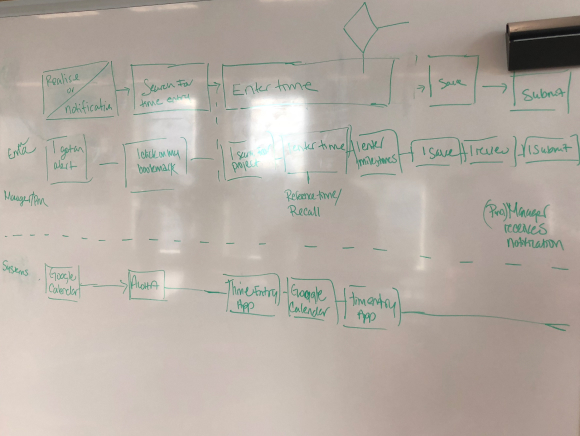 Realise
or
notification
Search For
time entry
Enter time
Save
Submit
I got an
alert
I click on my
bookmark
project
I enter time
I enter
milestones
I save
I review
I Submit
Reference time/
Recall
Manager
receives
notification
Systems
Google
Calendar
Time Entry
App
Google
Calendar
Time entry
App